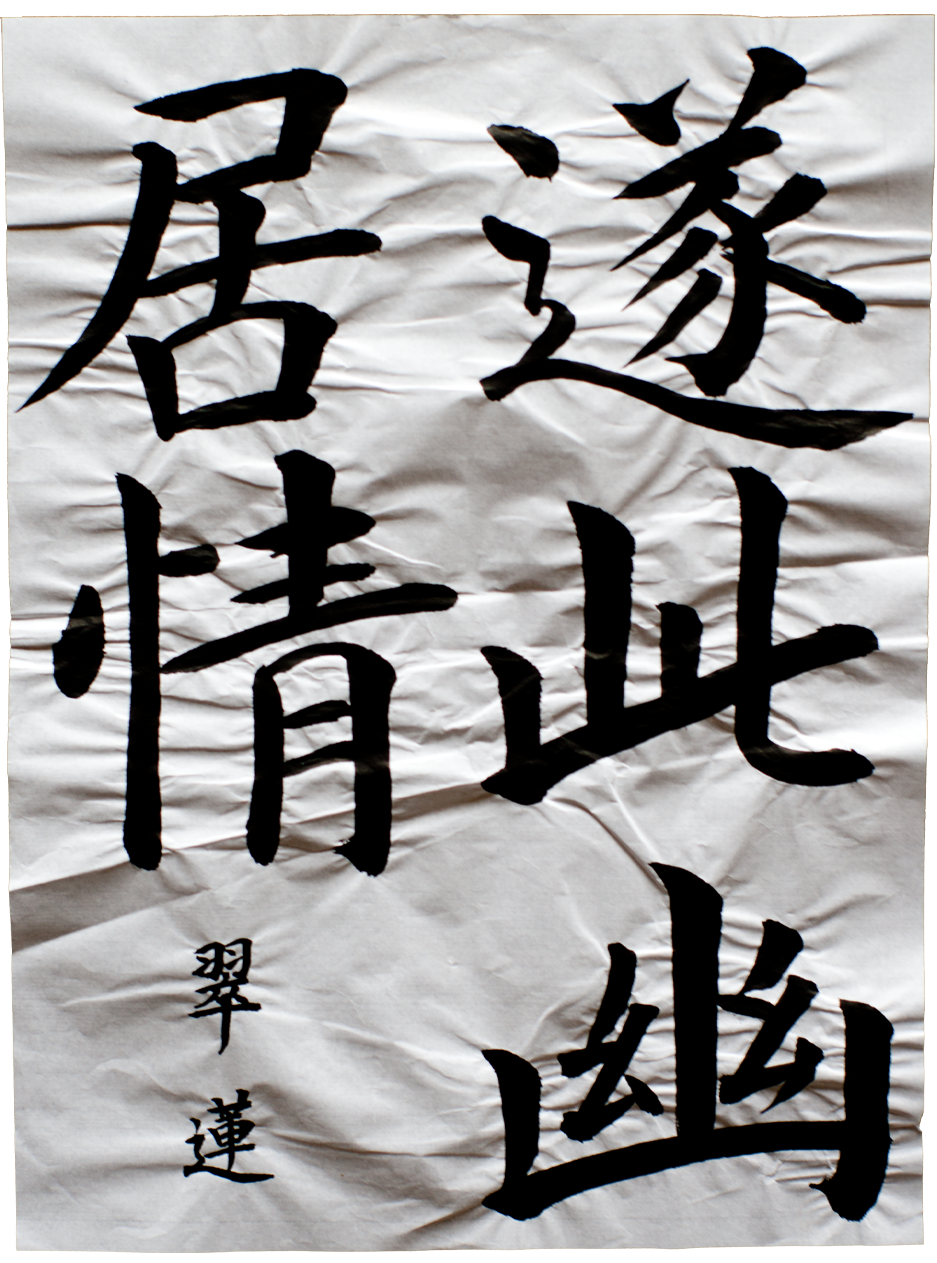 遂此幽
居情
翠蓮